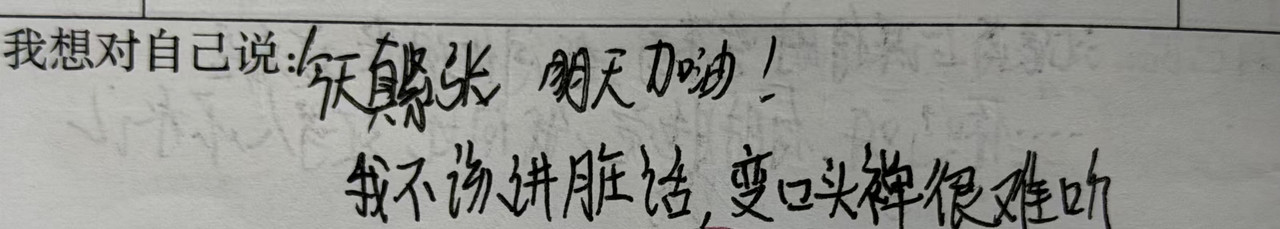 我想对自己说:今天真紧张 明天加油!
我不该进脏话,变口头禅很难听